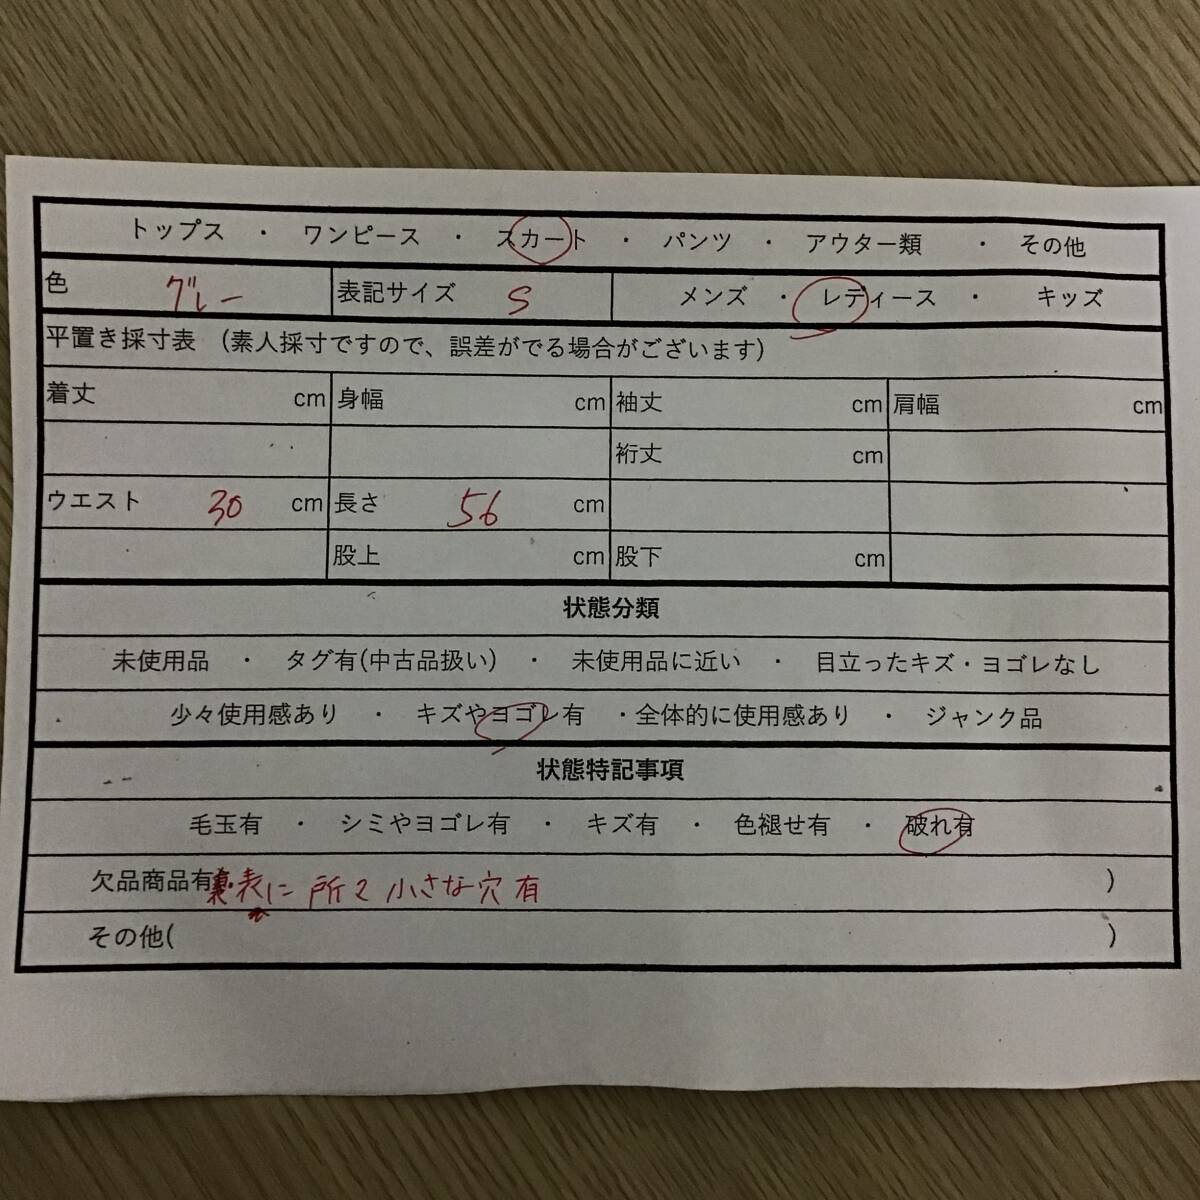 トップス ・ ワンピース ・ スカート ・ パンツ ・ アウター類 ・ その他
色 グレー 表記サイズ S メンズ ・ レディース ・ キッズ
平置き採寸表 (素人採寸ですので、誤差がでる場合がございます)
着丈 cm 身幅 cm 袖丈 cm 肩幅 cm
裄丈 cm
ウエスト 30 cm 長さ 56 cm
股上 cm 股下 cm
状態分類
未使用品 ・ タグ有(中古品扱い) ・ 未使用品に近い ・ 目立ったキズ・ヨゴレなし
少々使用感あり ・ キズやヨゴレ有 ・全体的に使用感あり ・ ジャンク品
状態特記事項
毛玉有 ・ シミやヨゴレ有 ・ キズ有 ・ 色褪せ有 ・ 破れ有
欠品商品有 表に 所々 小さな穴 有 )
その他( )